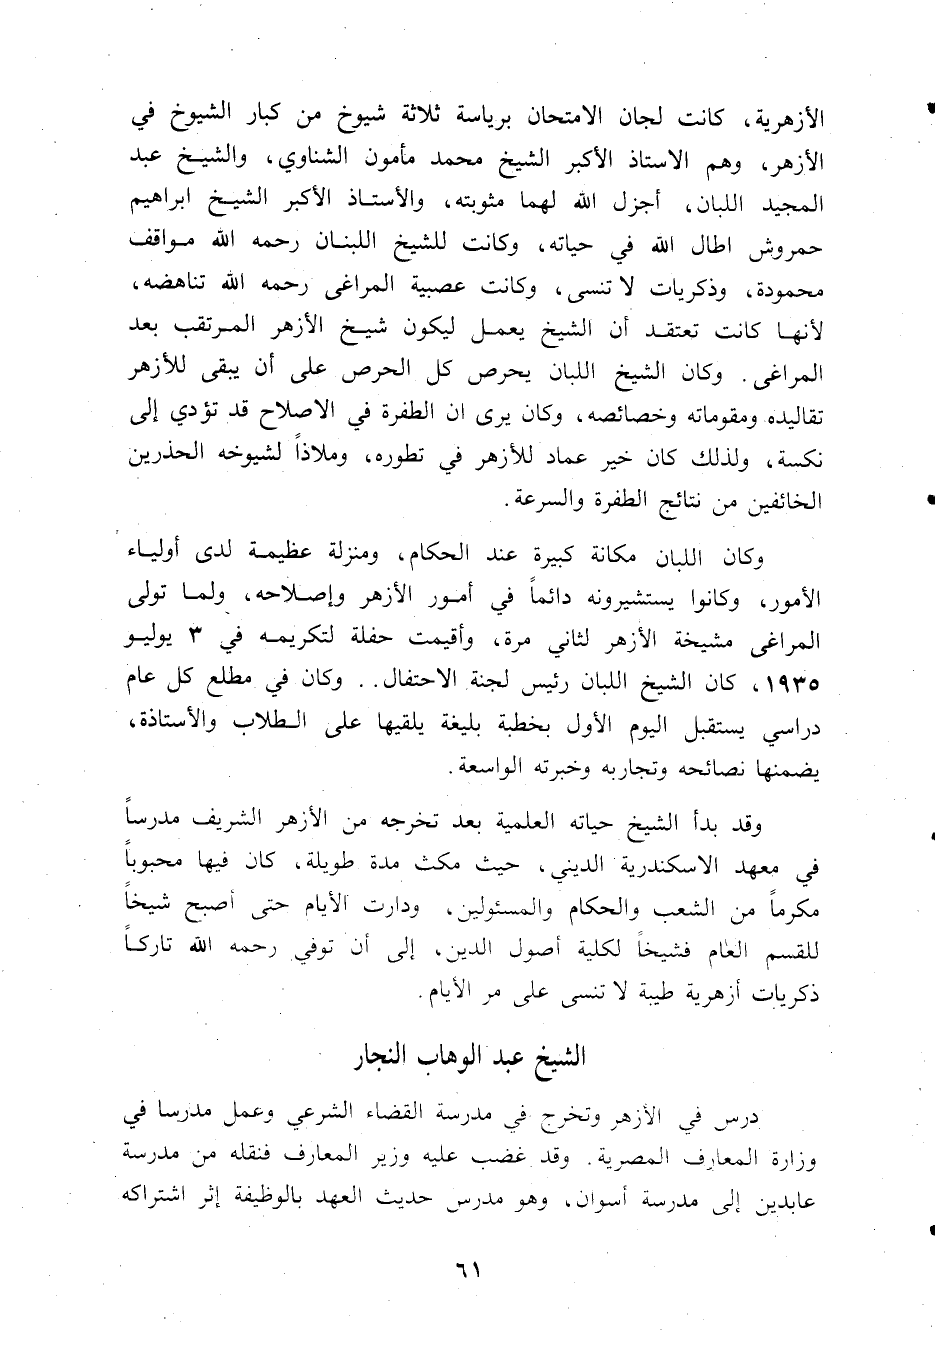 الأزهرية، كانت لجان الامتحان برياسة ثلاثة شيوخ من كبار الشيوخ في
الأزهر، وهم الاستاذ الأكبر الشيخ محمد مأمون الشناوي، والشيخ عبد
المجيد اللبان، أجزل الله لهما مثوبته، والأستاذ الأكبر الشيخ ابراهيم
حمروش اطال الله في حياته، وكانت للشيخ اللبنان رحمه الله مواقف
محمودة، وذكريات لا تنسى، وكانت عصبية المراغى رحمه الله تناهضه،
لأنها كانت تعتقد أن الشيخ يعمل ليكون شيخ الأزهر المرتقب بعد
المراغى. وكان الشيخ اللبان يحرص كل الحرص على أن يبقى للأزهر
تقاليده ومقوماته وخصائصه، وكان يرى ان الطفرة في الاصلاح قد تؤدي إلى
نكسة، ولذلك كان خير عماد للأزهر في تطوره، وملاذاً لشيوخه الحذرين
الخائفين من نتائج الطفرة والسرعة.
وكان اللبان مكانة كبيرة عند الحكام، ومنزلة عظيمة لدى أولياء
الأمور، وكانوا يستشيرونه دائماً في أمور الأزهر وإصلاحه، ولما تولى
المراغى مشيخة الأزهر لثاني مرة، وأقيمت حفلة لتكريمه في ٣ يوليو
١٩٣٥، كان الشيخ اللبان رئيس لجنة الاحتفال.. وكان في مطلع كل عام
دراسي يستقبل اليوم الأول بخطبة بليغة يلقيها على الطلاب والأستاذة،
يضمنها نصائحه وتجاربه وخبرته الواسعة.
وقد بدأ الشيخ حياته العلمية بعد تخرجه من الأزهر الشريف مدرساً
في معهد الاسكندرية الديني، حيث مكث مدة طويلة، كان فيها محبوباً
مكرماً من الشعب والحكام والمسئولين، ودارت الأيام حتى أصبح شيخاً
للقسم العام فشيخاً لكلية أصول الدين، إلى أن توفي رحمه الله تاركاً
ذكريات أزهرية طيبة لا تنسى على مر الأيام.
الشيخ عبد الوهاب النجار
درس في الأزهر وتخرج في مدرسة القضاء الشرعي وعمل مدرسا في
وزارة المعارف المصرية. وقد غضب عليه وزير المعارف فنقله من مدرسة
عابدين إلى مدرسة أسوان، وهو مدرس حديث العهد بالوظيفة إثر اشتراكه
٦١